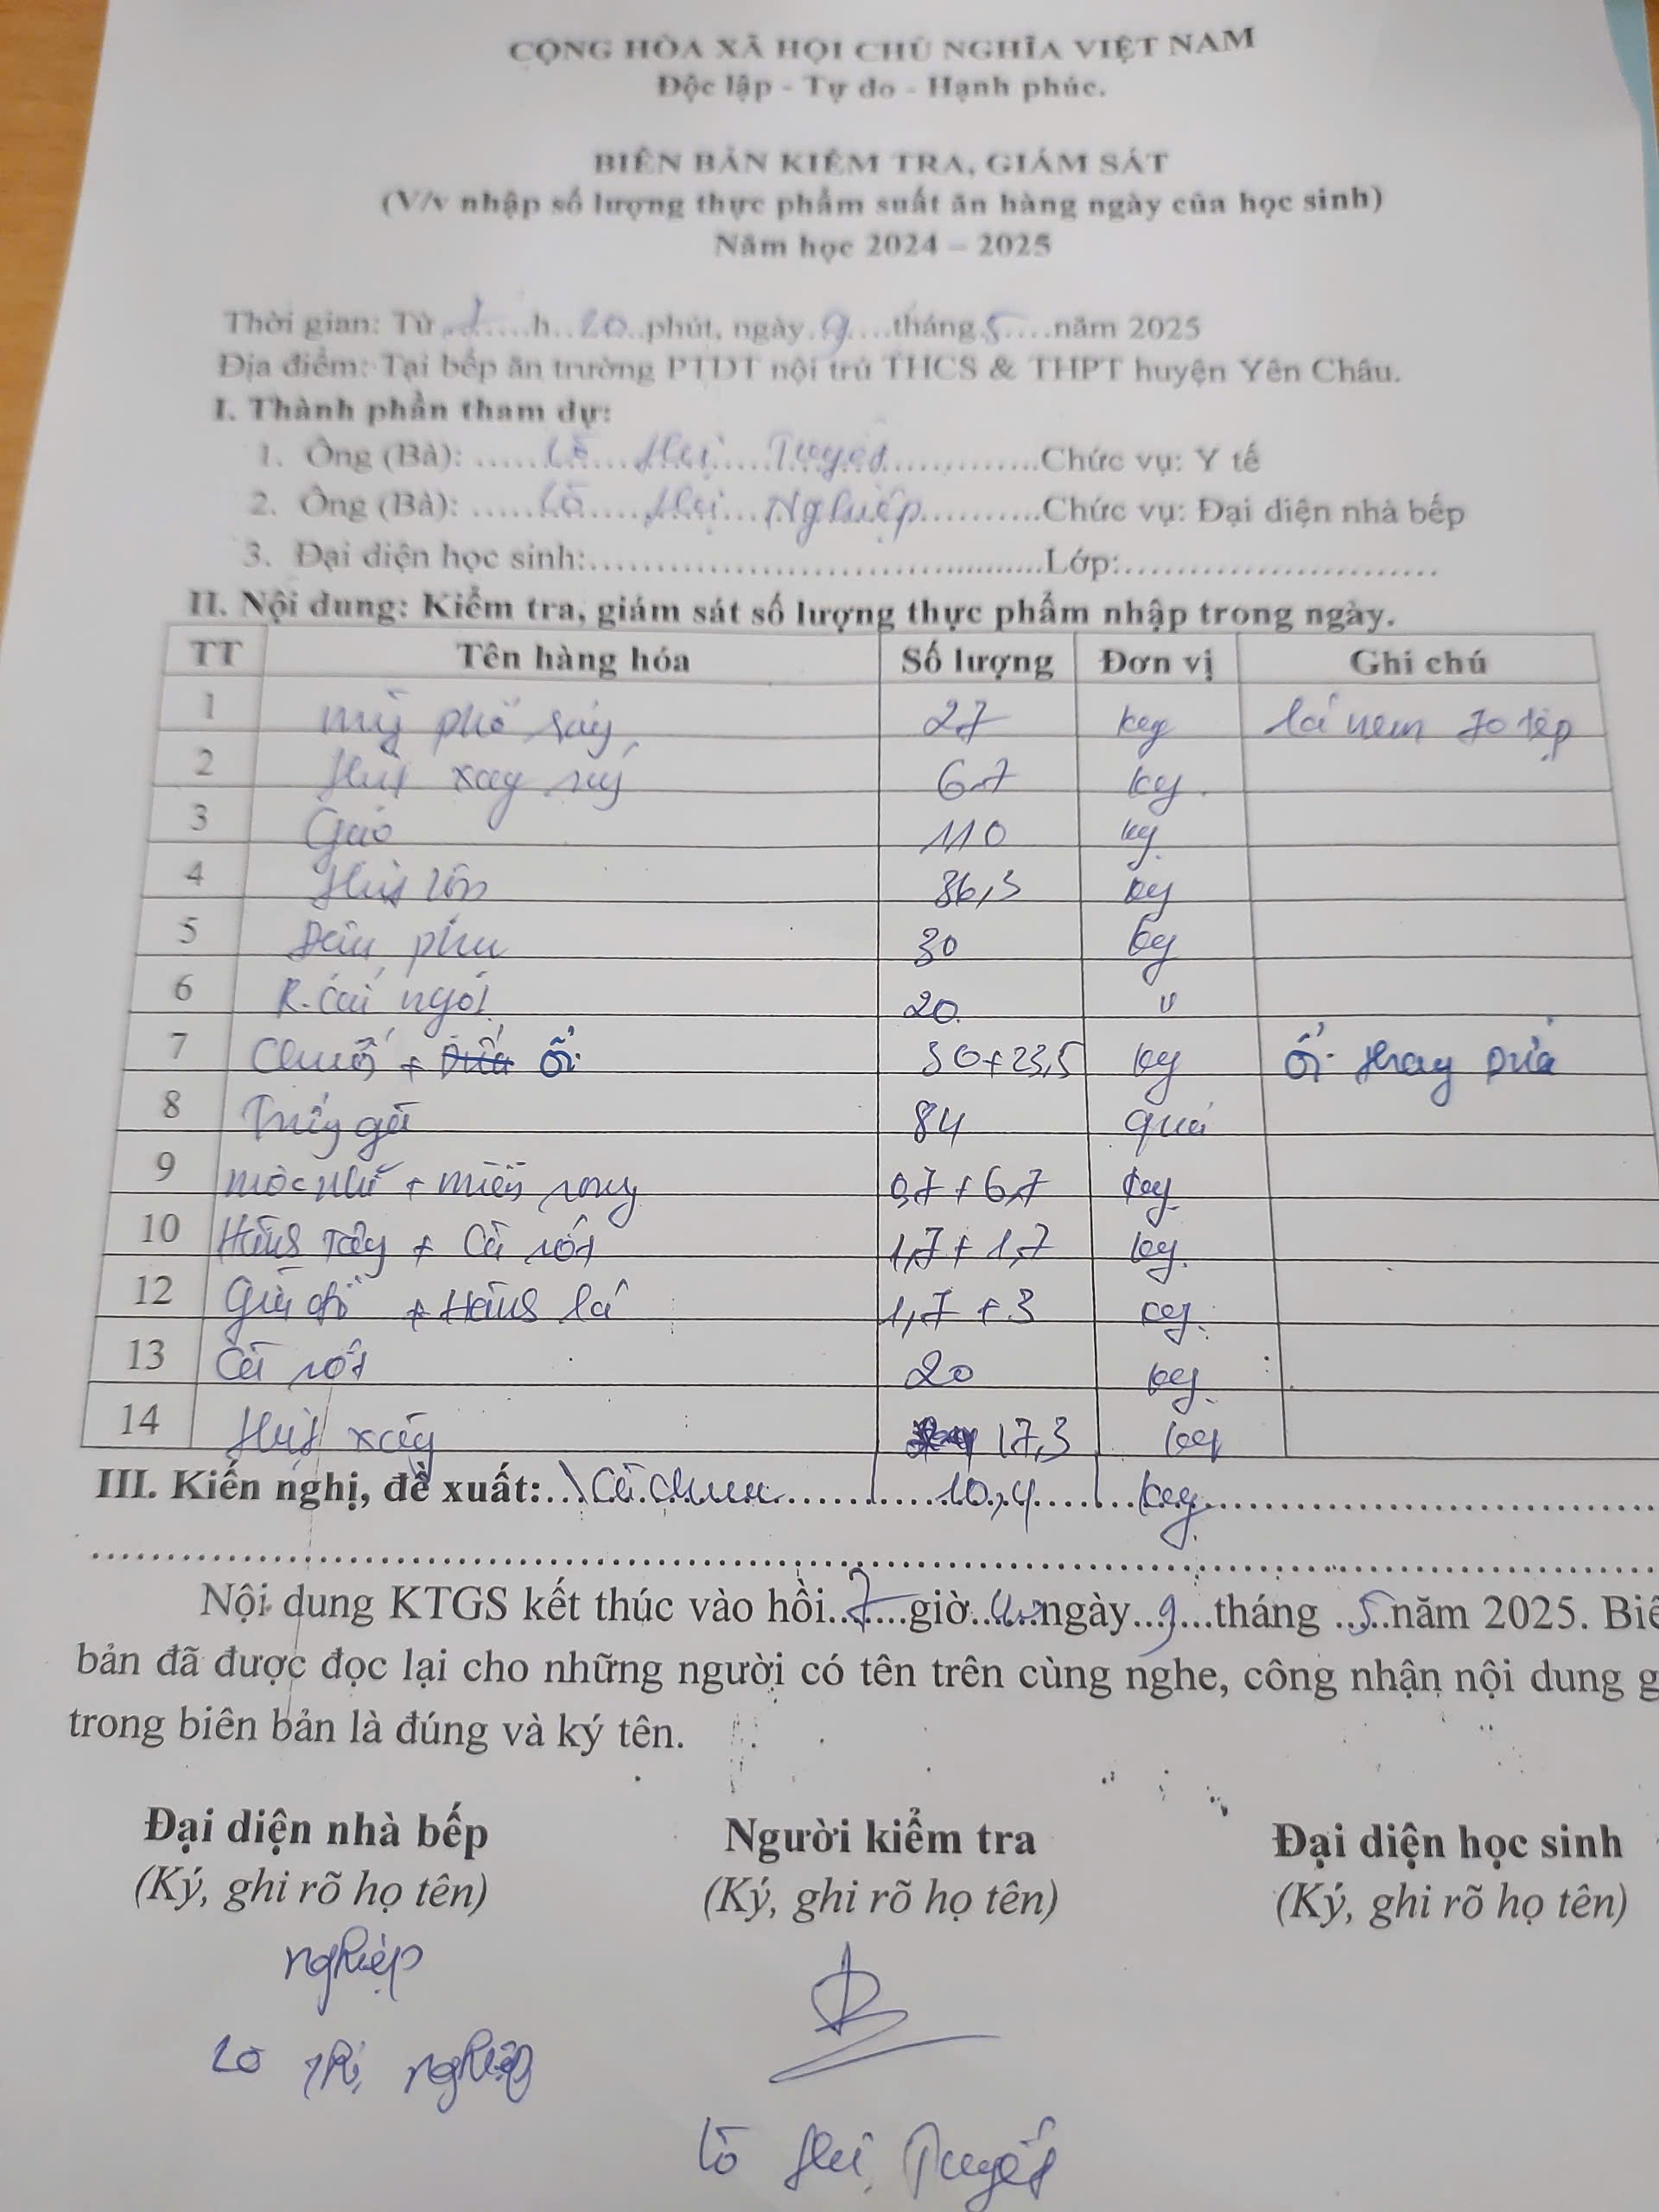 CỘNG HÒA XÃ HỘI CHỦ NGHĨA VIỆT NAM
Độc lập - Tự do - Hạnh phúc.
BIÊN BẢN KIỂM TRA, GIÁM SÁT
(V/v nhập số lượng thực phẩm suất ăn hàng ngày của học sinh)
Năm học 2024 – 2025
Thời gian: Từ 7 h 20 phút, ngày 9 tháng 5 năm 2025
Địa điểm: Tại bếp ăn trường PTDT nội trú THCS & THPT huyện Yên Châu.
I. Thành phần tham dự:
1. Ông (Bà): Lò Thị Tuyết Chức vụ: Y tế
2. Ông (Bà): Lò Thị Nghiệp Chức vụ: Đại diện nhà bếp
3. Đại diện học sinh: Lớp:
II. Nội dung: Kiểm tra, giám sát số lượng thực phẩm nhập trong ngày.
TT Tên hàng hóa Số lượng Đơn vị Ghi chú
1 Mỳ phở 27 kg lá nem 70 tệp
2 Thịt xay 6,7 kg
3 Gạo 110 kg
4 Thịt lợn 36,3 kg
5 Đậu phụ 30 kg
6 R. cải ngót 20 "
7 Chuối + Dứa ổi 30+23,5 kg ổi thay Dứa
8 Trứng gà 84 quả
9 mộc nhĩ + miến rong 0,7 + 6,7 kg
10 Hành Tây + Cà rốt 1,7 + 1,7 kg
12 Giá đỗ + Hành lá 1,7 + 3 kg
13 Cà rốt 20 kg
14 Thịt xay 17,3 kg
III. Kiến nghị, đề xuất: Cà chua 10,4 kg
Nội dung KTGS kết thúc vào hồi 7 giờ 40 ngày 9 tháng 5 năm 2025. Biê
bản đã được đọc lại cho những người có tên trên cùng nghe, công nhận nội dung g
trong biên bản là đúng và ký tên.
Đại diện nhà bếp Người kiểm tra Đại diện học sinh
(Ký, ghi rõ họ tên) (Ký, ghi rõ họ tên) (Ký, ghi rõ họ tên)
Nghiệp
Lò Thị Nghiệp
Lò Thị Tuyết